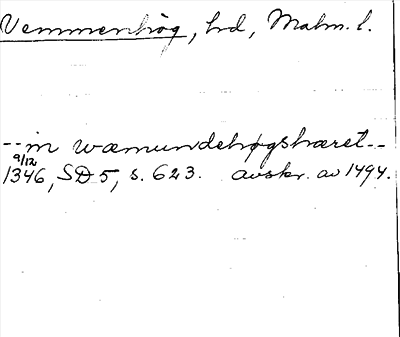 Vemmenhög, hd, Malm. l.
--in wæmundehøgshæret--
9/12
1346, SD 5, s. 623. avskr. av 1494.